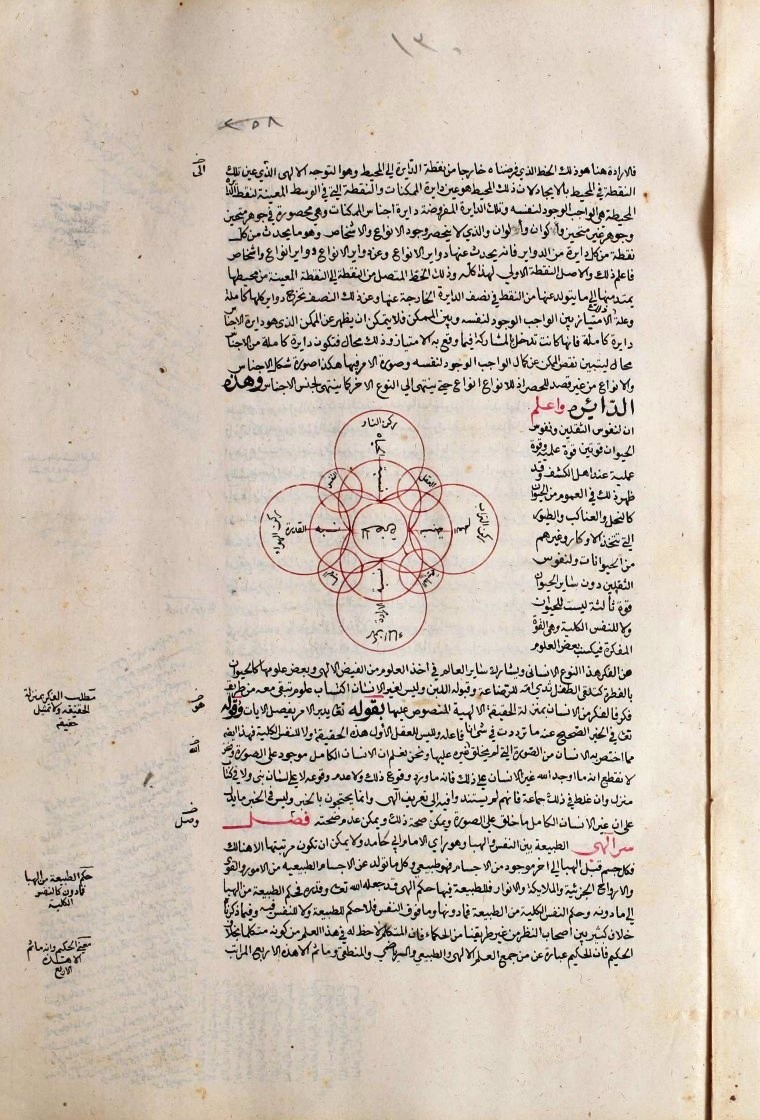 ١٣٠
٢٥٨
فالارادة هنا هو ذلك الخط الذي فرضناه خارجا من نقطة الدايرة الى المحيط وهو التوجه الالهي الذي عين تلك
النقطة في المحيط بالايجاد لان ذلك المحيط هو عين دايرة الممكنات والنقطة التي في الوسط المعينة لنقطة الدايرة
المحيطة هي الواجب الوجود لنفسه وتلك الدايرة المفروضة دايرة اجناس الممكنات وهي محصورة في جوهر متحيز
وجوهر غير متحيز واكوان والوان والذي لا ينحصر وجود الانواع والاشخاص وهو ما يحدث من كل
نقطة من كل دايرة من الدواير فانه يحدث عنها دواير الانواع وعن دواير الانواع دواير انواع واشخاص
فاعلم ذلك والاصل النقطة الاولى لهذا كله وذلك الخط المتصل من النقطة الى النقطة المعينة من محيطها
يمتد منها الى ما يتولد عنها من النقط في نصف الدايرة الخارجة عنها وعن ذلك النصف تخرج دواير كلها كاملة
وعلة ذلك الامتياز بين الواجب الوجود لنفسه وبين الممكن فلا يتمكن ان يظهر عن الممكن الذي هو دايرة الاجناس
دايرة كاملة فانها كانت تدخل المشاركة فيما وقع به الامتياز وذلك محال فتكون دايرة كاملة من الاجناس
محال ليتبين نقص الممكن عن كمال الواجب الوجود لنفسه وصورة الامر فيها هكذا صورة شكل الاجناس
والانواع من غير قصد للحصر اذ للانواع انواع حتى ينتهي الى النوع الاخر كما ينتهي لجنس الاجناس وهذه
الدائره واعلم
ان لنفوس الثقلين ونفوس
الحيوان قوتين قوة علمية وقوة
عملية عند اهل الكشف وقد
ظهر ذلك في العموم من الحيوان
كالنحل والعناكب والطيور
التي تتخذ الاوكار وغيرهم
من الحيوانات ولنفوس
الثقلين دون ساير الحيوان
قوة ثالثة ليست للحيوان
ولا للنفس الكلية وهي القوة
المفكرة فيكتسب بعض العلوم
ركن النار
نسبة الحياه
النفس
العقل
ركن الهواء
القدرة
نسبة
الحق
نسبة
العلم
ركن التراب
نسبة
الارادة
ركن الماء
عن الفكر هذا النوع الانساني ويشارك ساير العالم في اخذ العلوم من الفيض الالهي وبعض علومها كالحيوان
بالفطرة كتلقي الطفل ثدي امه للرضاعة وقبوله اللبن وليس لغير الانسان اكتساب علوم تبقى معه من طريق
فكر فالفكر من الانسان بمنزلة الحقيقة الالهية المنصوص عليها بقوله تعالى يدبر الامر يفصل الايات وقوله
تعالى في الخبر الصحيح عنه ما ترددت في شي انا فاعله وليس للعقل الاول هذه الحقيقة ولا للنفس الكلية فهذا ايضا
مما اختص به الانسان من الصورة التي لم يخلق غيره عليها ونحن نعلم ان الانسان الكامل موجود على الصورة ونحن
لا نقطع انه ما اوجد الله غير الانسان على ذلك فانه ما ورد وقوع ذلك ولا عدم وقوعه لا على لسان نبي ولا في كتاب
منزل وان غلط في ذلك جماعة فانهم لم يستندوا فيه الى تعريف الهي وانما يحتجون بالخبر وليس في الخبر ما يدل
على ان غير الانسان الكامل ما خلق على الصورة ويمكن صحة ذلك ويمكن عدم صحته فصل
سر الهي الطبيعة بين النفس والهبا وهو راي الامام ابي حامد ولا يمكن ان تكون مرتبتها الا هنالك
فكل جسم قبل الهبا الى اخر موجود من الاجسام فهو طبيعي وكل ما تولد عن الاجسام الطبيعيه من الامور والقوى
والارواح الجزئية والملايكة والانوار فللطبيعة فيها حكم الهي قد جعله الله تعالى وقدره فحكم الطبيعة من الهبا
الى ما دونه وحكم النفس الكلية من الطبيعة فما دونها وما فوق النفس فلا حكم للطبيعة ولا للنفس فيه وفيما ذكرناه
خلاف كثير بين اصحاب النظر من غير طريقنا من الحكماء فان المتكلم لا حظ له في هذا العلم من كونه متكلما بخلاف
الحكيم فان الحكيم عبارة عن من جمع العلم الالهي والطبيعي والرياضي والمنطقي وما ثم الا هذه الاربع المراتب
مطلب الفكر بمنزلة
الحقيقه
حكم الطبيعة من الهبا
فما دون كالنفس
الكلية
معنى الحكيم وانه ما ثم
الا هذه
الاربع